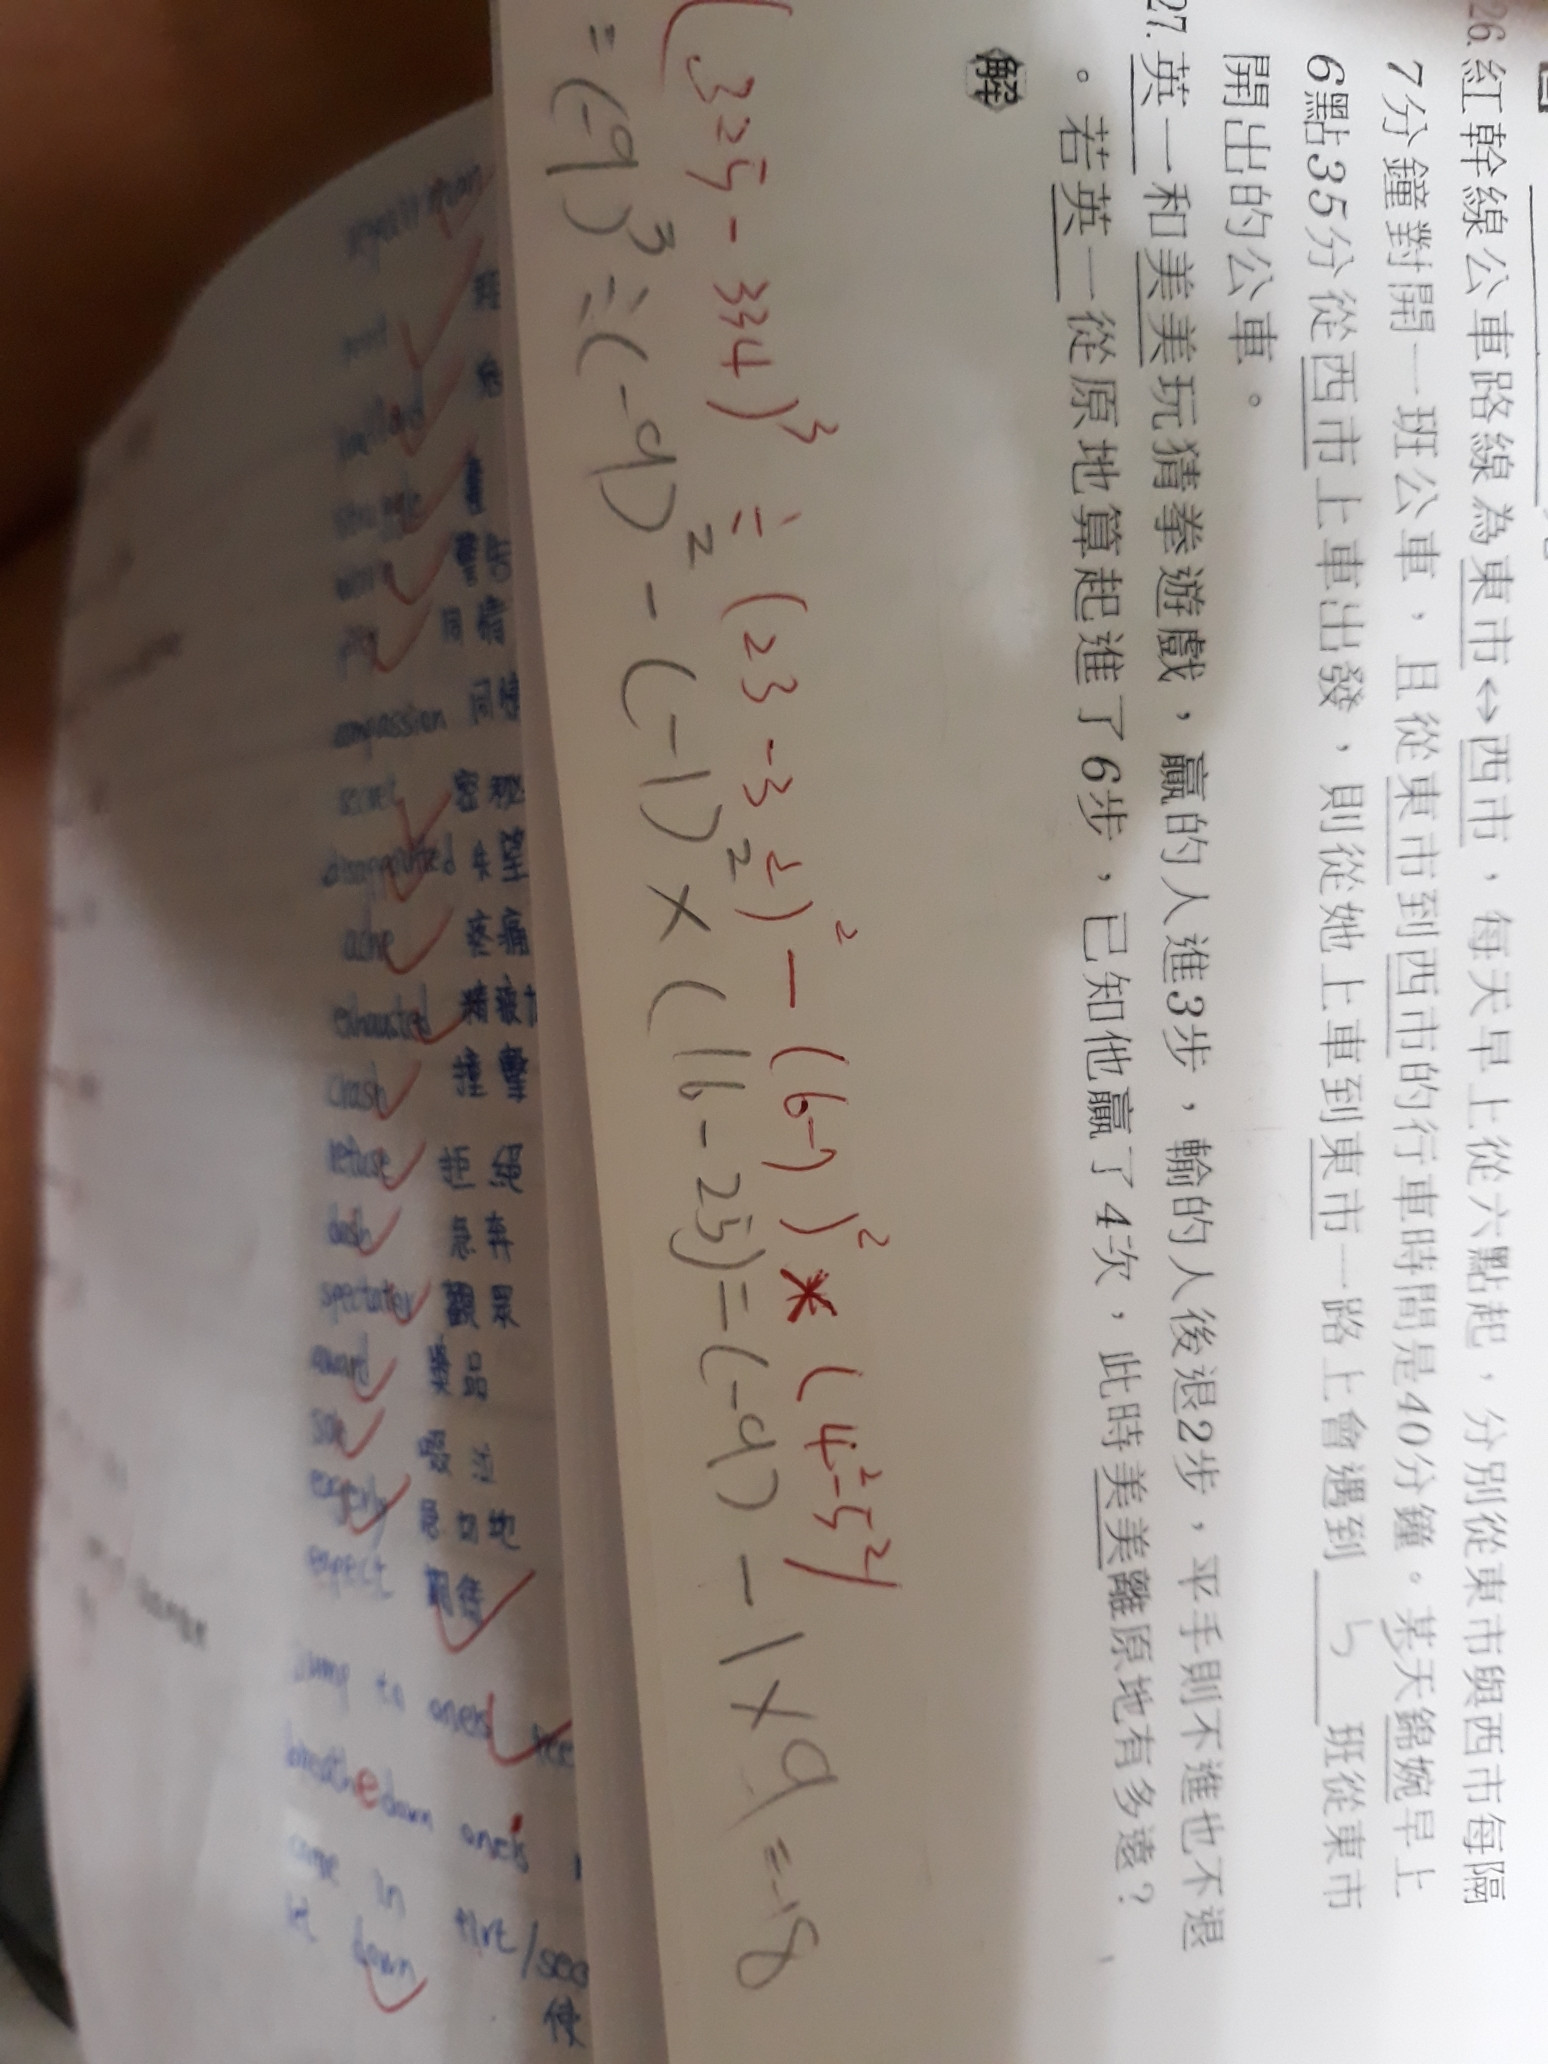 26.紅幹線公車路線為東市↔西市，每天早上從六點起，分別從東市與西市每隔
7分鐘對開一班公車，且從東市到西市的行車時間是40分鐘。某天錦婉早上
6點35分從西市上車出發，則從她上車到東市一路上會遇到 5 班從東市
開出的公車。
27.英一和美美玩猜拳遊戲，贏的人進3步，輸的人後退2步，平手則不進也不退
。若英一從原地算起進了6步，已知他贏了4次，此時美美離原地有多遠？
解
(325-334)³÷(23-32)²-(6-7)²×(4²-5²)
=(-9)³÷(-9)²-(-1)²×(16-25)=(-9)-1×9=-18
同情
compassion 同情
secret 密秘
disappointed 失望
ache 疼痛
exhausted 精疲
crash 撞擊
refuse 拒絕
dash 急奔
spectator 觀眾
award 獎品
eagerly 急切地
expect 期待
jump to one's
breathe down one's
come in first/sec
let down 使